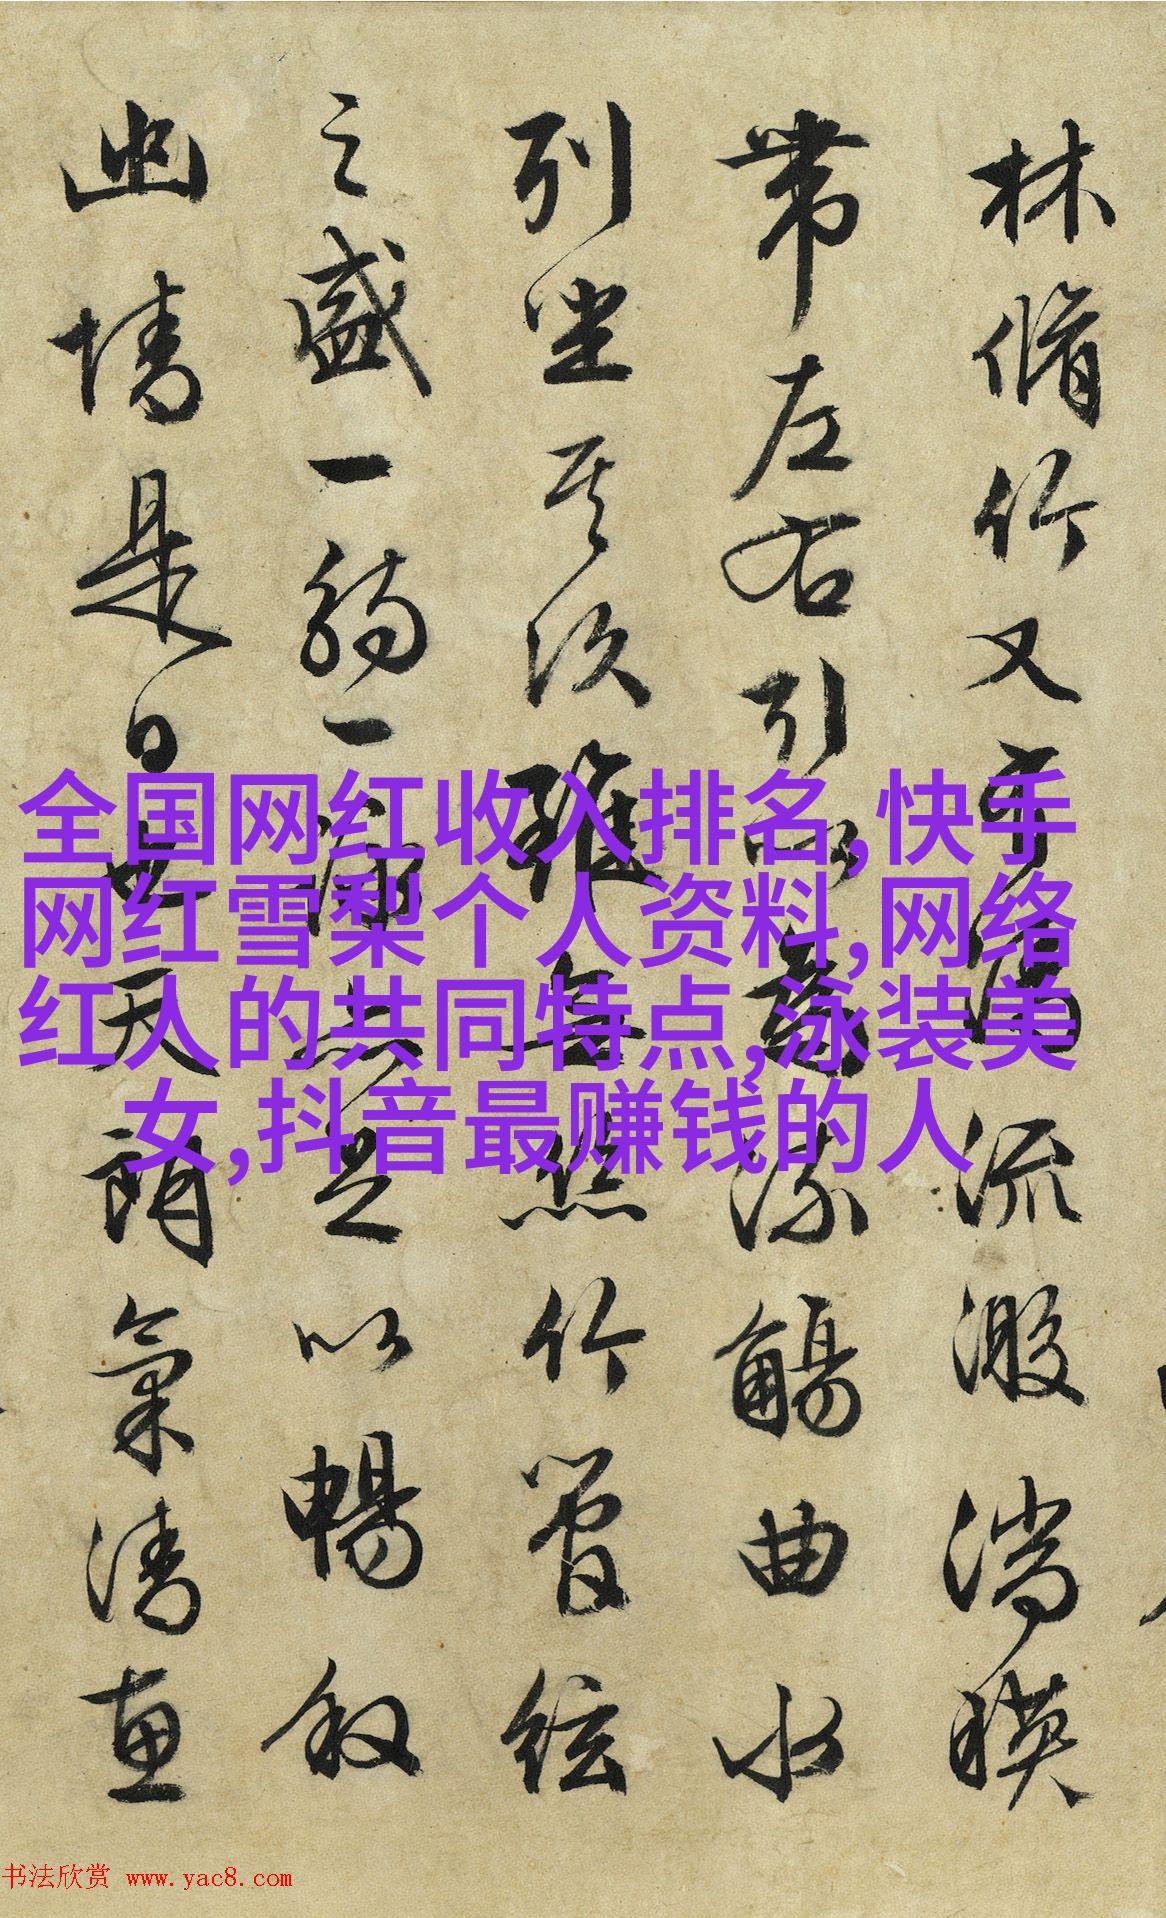 林脩竹又有清流激湍暎
帶左右引以為流觴曲水
列坐其次雖無絲竹管絃
之盛一觴一詠亦足以暢叙
幽情是日也天朗氣清惠
全国网红收入排名,快手
网红雪梨个人资料,网络
红人的共同特点,泳装美
女,抖音最赚钱的人
书法欣赏 www.yac8.com